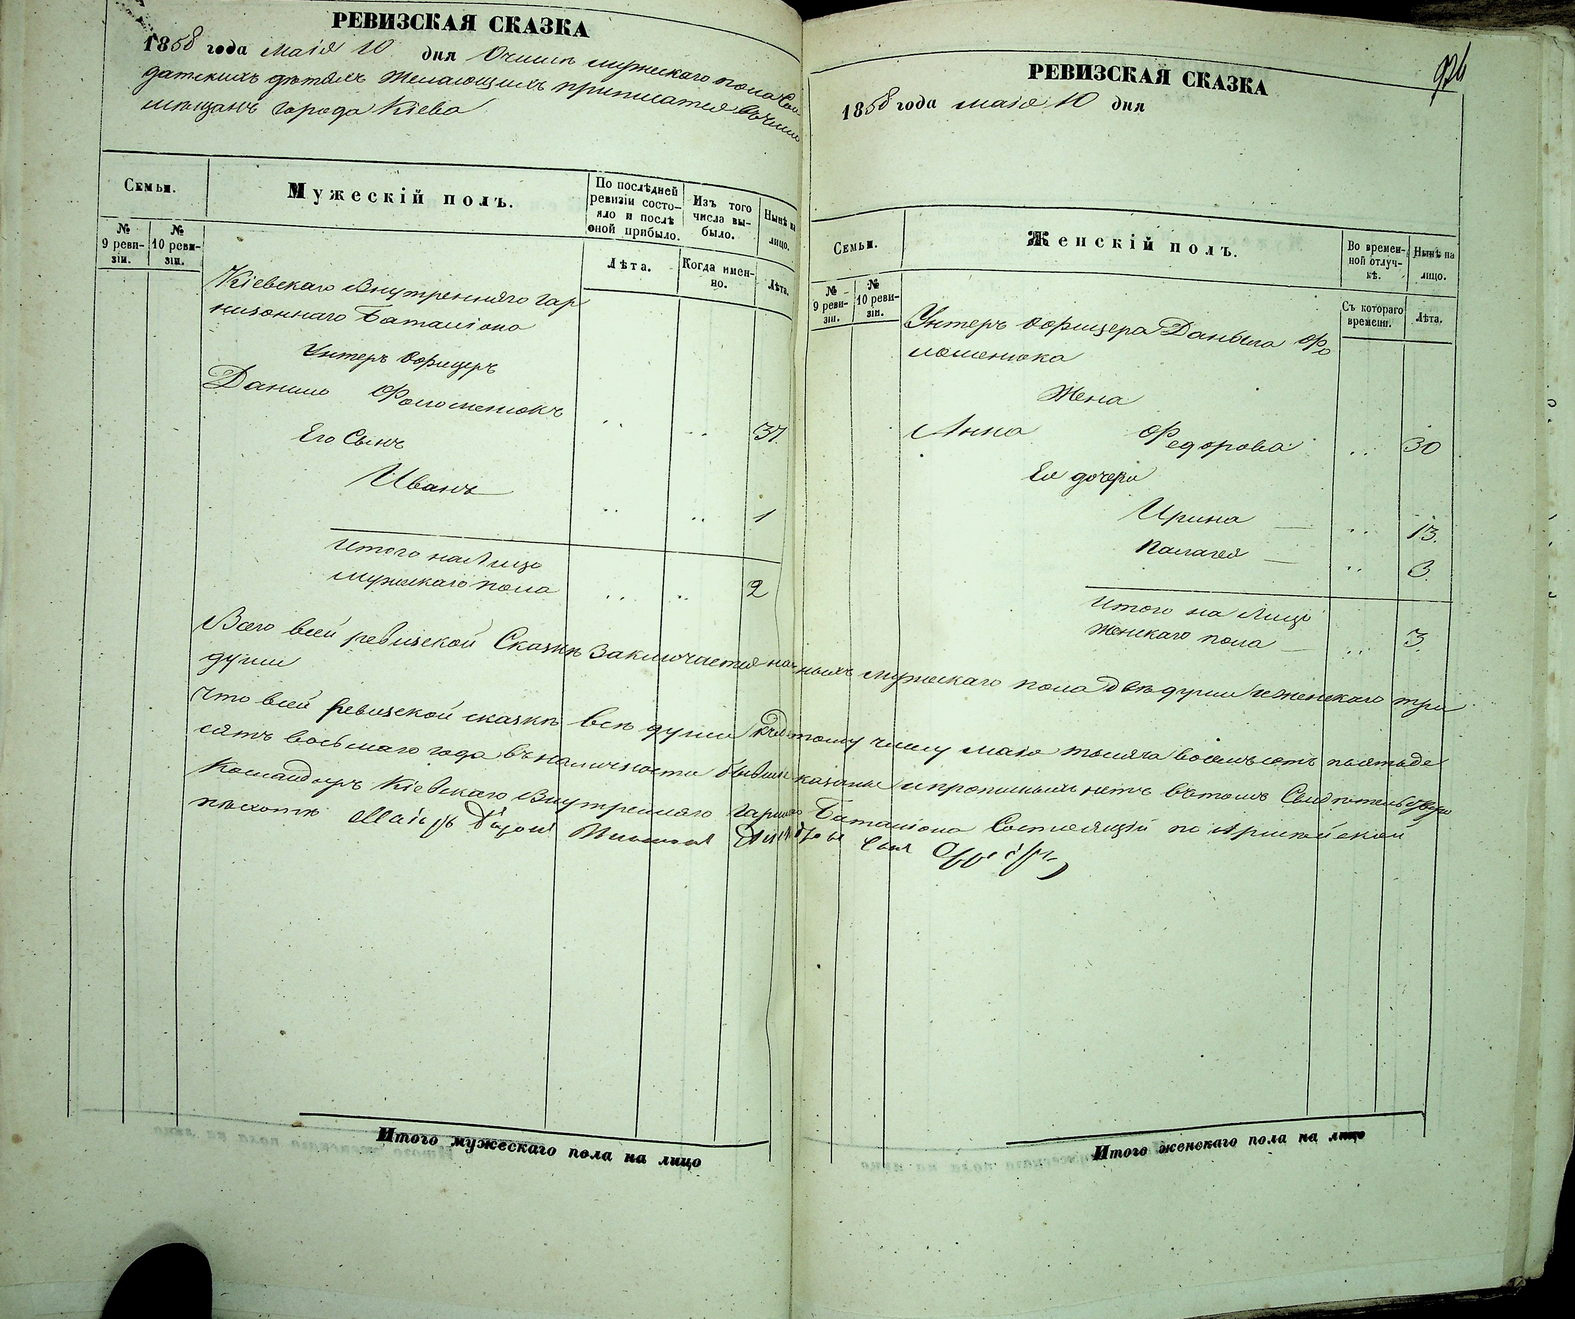 РЕВИЗСКАЯ СКАЗКА
1858 года маія 10 дня О числѣ мужескаго пола Сол
датскихъ дѣтяхъ желающихъ приписатся въ число
мѣщанъ города Кіева
Семьи.
Мужескій полъ.
По послѣдней ревизіи состояло и послѣ оной прибыло.
Изъ того числа выбыло.
Нынѣ на лицо.
№ 9 ревизіи.
№ 10 ревизіи.
Лѣта.
Когда именно.
Лѣта.
Кіевскаго Внутренняго Гар
низоннаго Баталіона
Унтеръ Офицеръ
Данило Фоломенюкъ 37.
Его Сынъ
Иванъ 1
Итого на Лицо
мужескаго пола 2
Итого мужескаго пола на лицо
924
РЕВИЗСКАЯ СКАЗКА
1858 года маія 10 дня
Семьи.
Женскій полъ.
Во временной отлучкѣ.
Нынѣ на лицо.
№ 9 ревизіи.
№ 10 ревизіи.
Съ котораго времени.
Лѣта.
Унтеръ Офицера Данила Фо
ломенюка
Жена
Анна Федорова 30
Ея дочери
Ирина 13.
Палагея 3
Итого на Лицо
Женскаго пола 3.
Всего въ сей ревизской Сказкѣ заключается наличныхъ мужескаго пола двѣ души и женскаго три
души
Что въ сей ревизской сказкѣ всѣ души къ 10му числу маія тысяча восемьсотъ пятьде
сятъ восьмаго года въ наличности бывшія показаны и прописныхъ нетъ въ томъ Свидѣтельствую
Командиръ Кіевскаго Внутренняго Гарниз Баталіона Состоящій по Армейской
пѣхотѣ Маіоръ
Итого женскаго пола на лицо